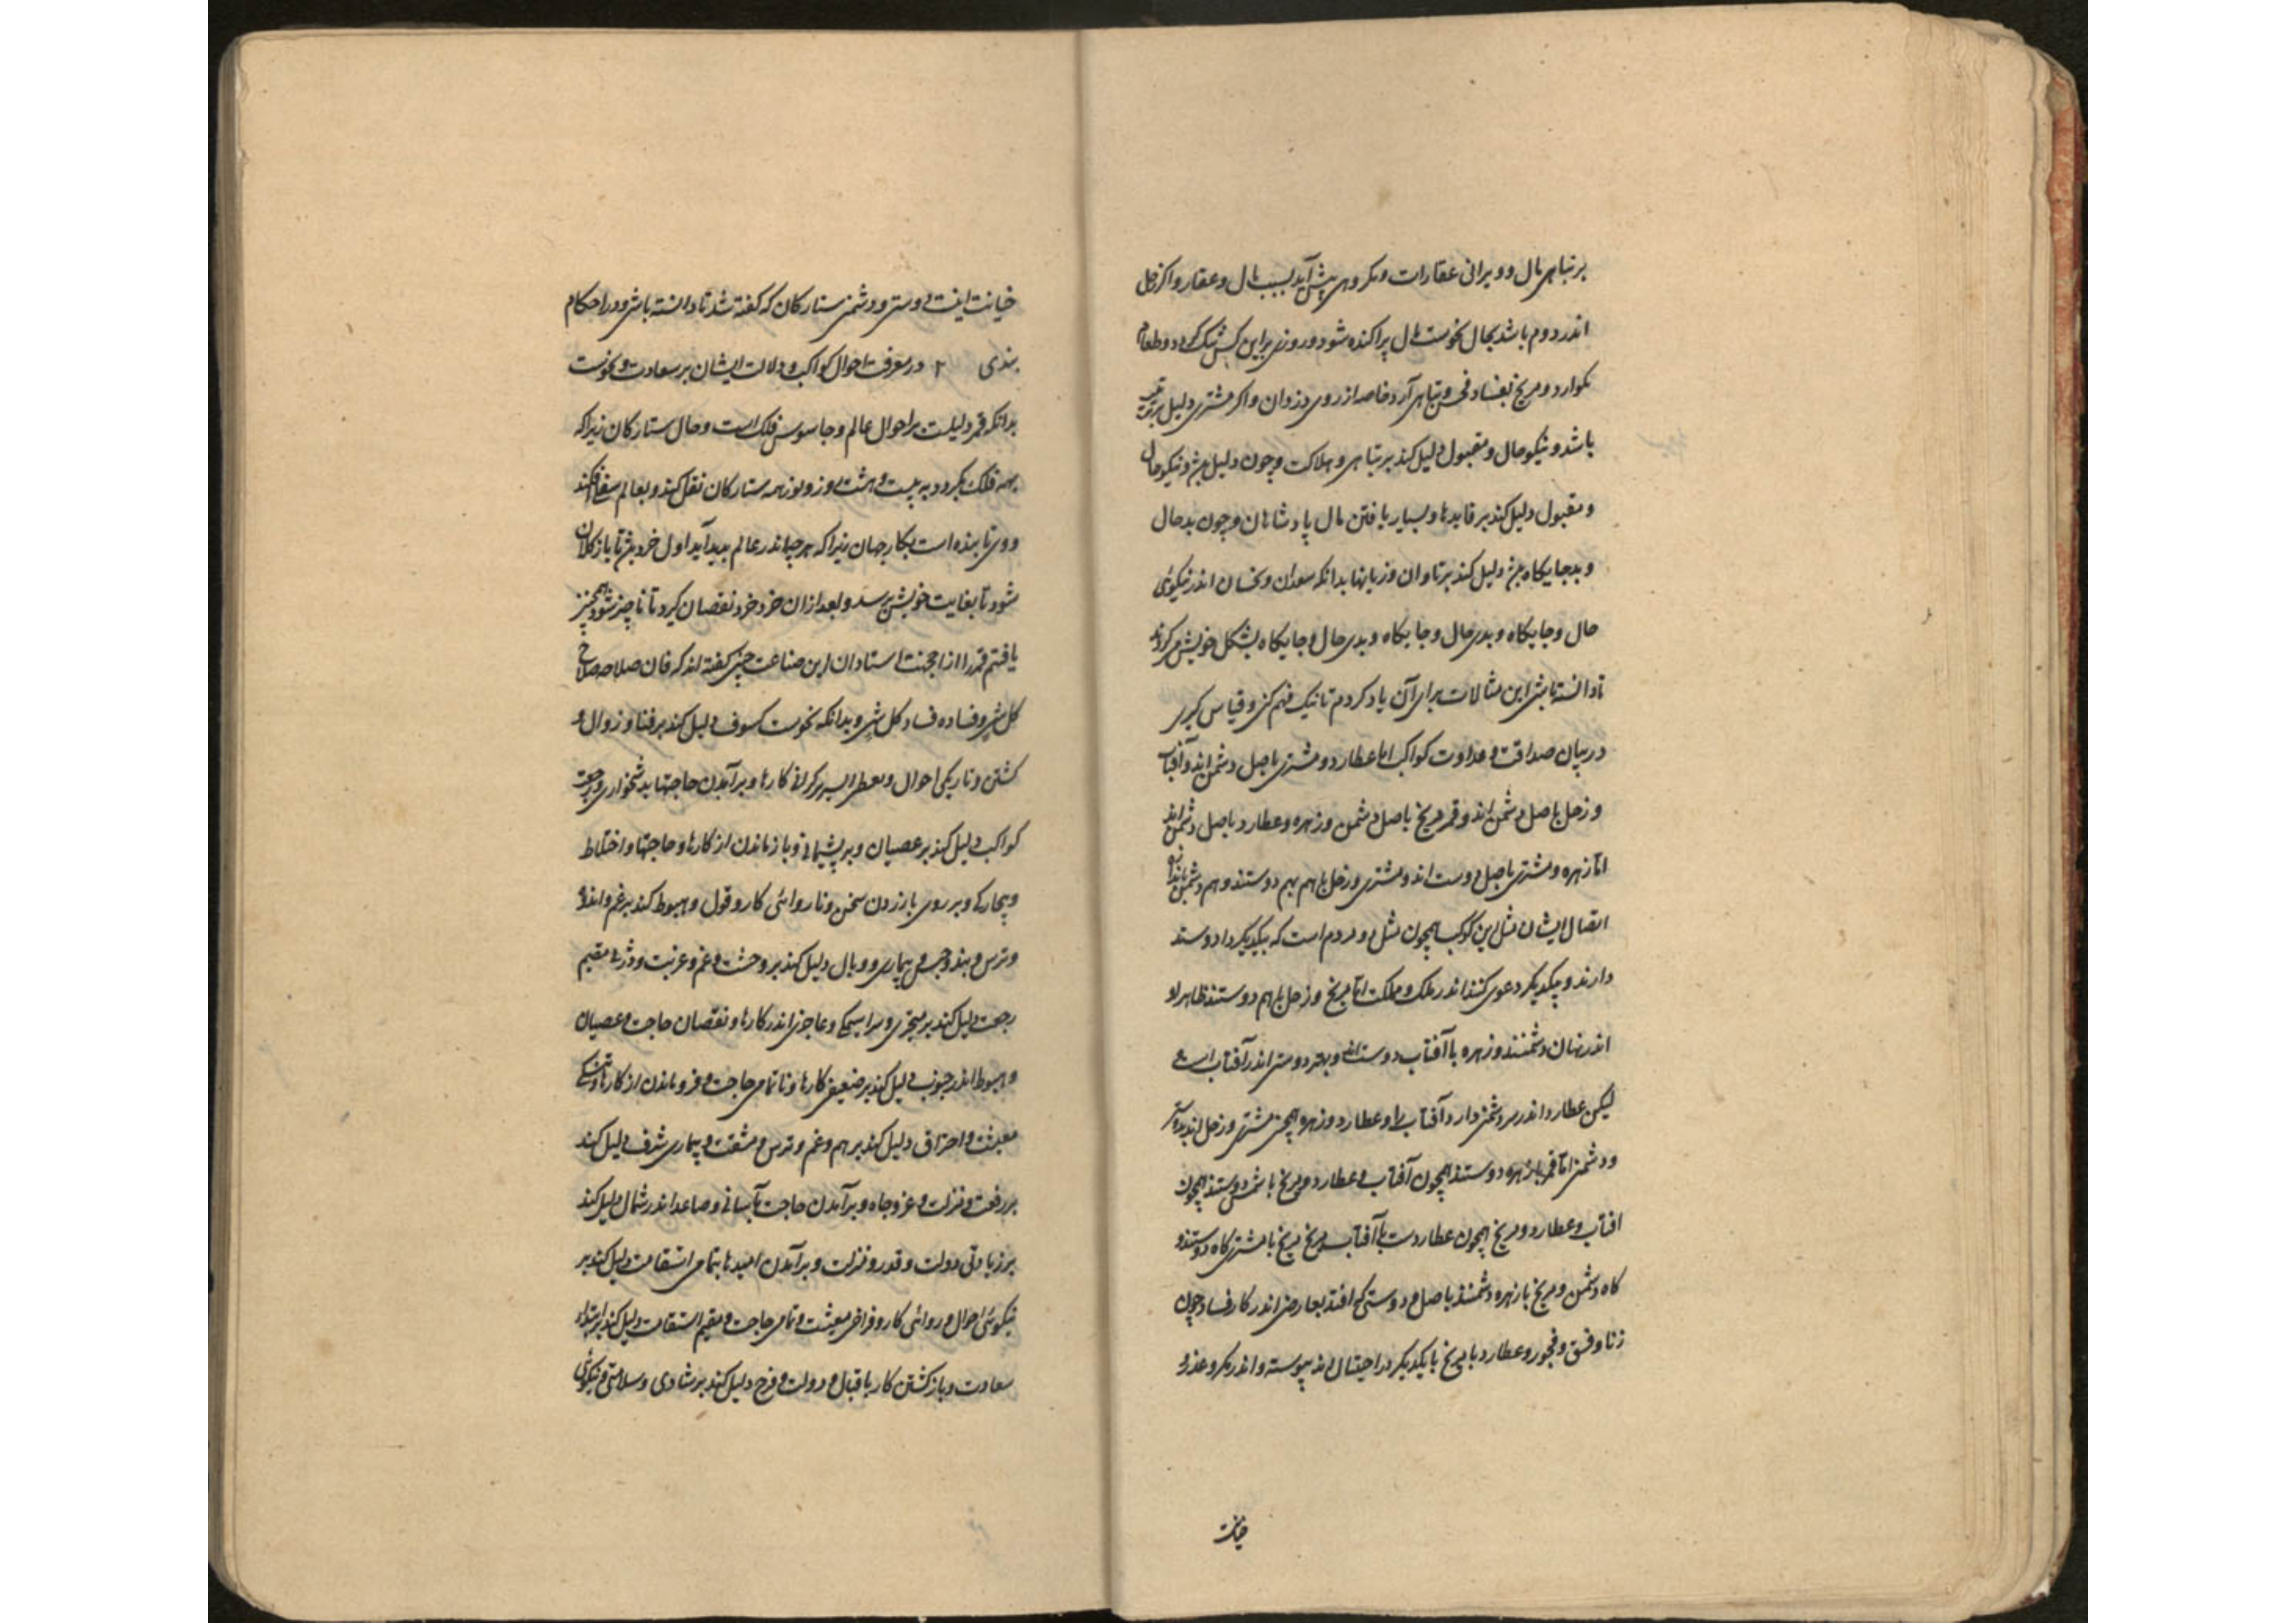 بر تباهی مال و ویرانی عقارات و مکروهی پیش آید بسبب مال و عقار و اکر زحل
اندر دوم باشد بحال نحوست مال پراکنده شود و روزی براین کس تنک کردد و طعام
نکوارد و مریخ بفساد و تباهی آرد خاصه از روی دزدان و اکر مشتری دلیل
باشد و نیکو حال و مقبول دلیل کند بر تباهی و هلاکت و چون دلیل و نیکو حال
و مقبول دلیل کند بر فایدها و بسیار یافتن مال پادشاهان و چون بد حال
و بد جایکاه دلیل کند بر تاوان و زیانها بدانکه سعدان و نحسان اندر نیکوئی
حال و جایکاه و بدی حال و جایکاه و بدی حال و جایکاه بشکل خویش می کردند
تا دانسته باشی این مثالات برای آن یاد کردم تا نیک فهم کنی و قیاس کیری
در بیان صداقت و عداوت کواکب اما عطارد و مشتری باصل دشمن اند و آفتاب
و زحل باصل دشمن اند و قمر و مریخ باصل دشمن و زهره و عطارد باصل دشمن اند
اما زهره و مشتری باصل دوست اند و مشتری و زحل با هم بهم دوستند و هم دشمن
اتصال ایشان مثل این کوکب همچون مثل دو مردم است که یکدیکر را دوست
دارند و یکدیکر دعوی کنند اندر ملک و مملکت اما مریخ و زحل با هم دوستند ظاهر او
اندر نهان دشمنند و زهره با آفتاب دوست است و بهتر دوستی اندر آفتاب است
لیکن عطارد اندر سر دشمنی دارد آفتاب را و عطارد و زهره همچنین مشتری و زحل اند
و دشمنی اما قمر با زهره دوستند همچون آفتاب و عطارد و مریخ با شمس دوستند همچون
افتاب و عطارد و مریخ همچون عطاردست با آفتاب و مریخ مریخ با مشتری کاه دوستند و
کاه دشمن و مریخ با زهره دشمنند باصل و دوستی که افتد بعارضی اندر کار فساد چون
زنا و فسق و فجور و عطارد با مریخ با یکدیکر در احتیال اند پیوسته و اندر مکر و غدر و
خیانت
خیانت اینست دوستی و دشمنی ستارکان که کفته شد تا دانسته باشی و در احکام
بندی ۲ در معرفت احوال کواکب و دلالت ایشان بر سعادت و نحوست
بدانکه قمر دلیلست بر احوال عالم و جاسوس فلک است و حال ستارکان زیرا که
بهمه فلک بکردد به بیست و هشت روز و نور همه ستارکان نقل کند و بعالم سفلی افکند
و وی تابنده است بکار جهان زیرا که هر چه اندر عالم پدید آید اول خرد باشد تا باز کلان
شود تا بغایت خویش برسد و بعد از ان خرد خرد نقصان کیرد تا ناچیز شود همچنین
یافتم قمر را از اجهت استادان این صناعت چنین کفته اند که فان صلاحه صلاح
کل شی و فساده فساد کل شی و بدانکه نحوست کسوف دلیل کند بر فنا و زوال و
کشتن و تاریکی احوال و کارها و بر آمدن حاجتها بدشخواری و رجعت
کواکب دلیل کند بر عصیان و بر پشیمانی و باز ماندن از کارها و حاجتها و اختلاط
و بیچارکی و بر روی باز زدن سخن و ناروائی کار و قول و هبوط کند بر غم و اندوه
و ترس و بند و حبس و بیماری و وبال دلیل کند بر وحشت و غم و غربت و مقیم
رجعت دلیل کند بر متحیری و سراسیمکی و عاجزی اندر کارها و نقصان حاجت و عصیان
و هبوط اندر جنوب دلیل کند بر ضعیفی کارها و ناتمامی حاجت و فرو ماندن از کارها و تنکی
معیشت و احتراق دلیل کند بر هم و غم و ترس و مشقت و بیماری شرف دلیل کند
بر رفعت و منزلت و عز و جاه و بر آمدن حاجت بآسانی و صاعد اندر شمال دلیل کند
بر زیادتی دولت و قدر و منزلت و بر آمدن امیدها بتمامی استقامت دلیل کند بر
نیکوئی احوال و روائی کار و فراخی معیشت و تمامی حاجت و مقیم استقامت دلیل کند بر ابتداء
سعادت و باز کشتن کار باقبال و دولت و فرح دلیل کند بر شادی و سلامتی و نیکوئی